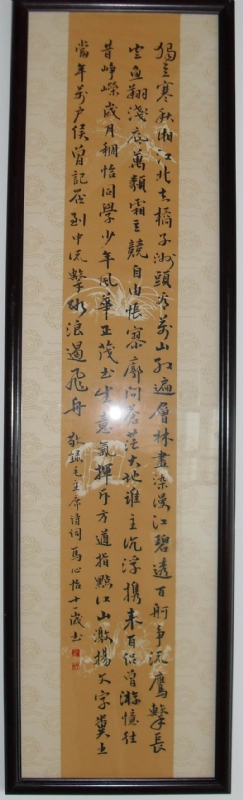 獨立寒秋湘江北去橘子洲頭看萬山紅遍層林盡染漫江碧透百舸爭流鷹擊長
空魚翔淺底萬類霜天競自由悵寥廓問蒼茫大地誰主沉浮攜來百侶曾游憶往
昔崢嶸歲月稠恰同學少年風華正茂書生意氣揮斥方遒指點江山激揚文字糞土
當年萬戶侯曾記否到中流擊水浪遏飛舟
敬錄毛主席詩詞馬心怡十一歲書